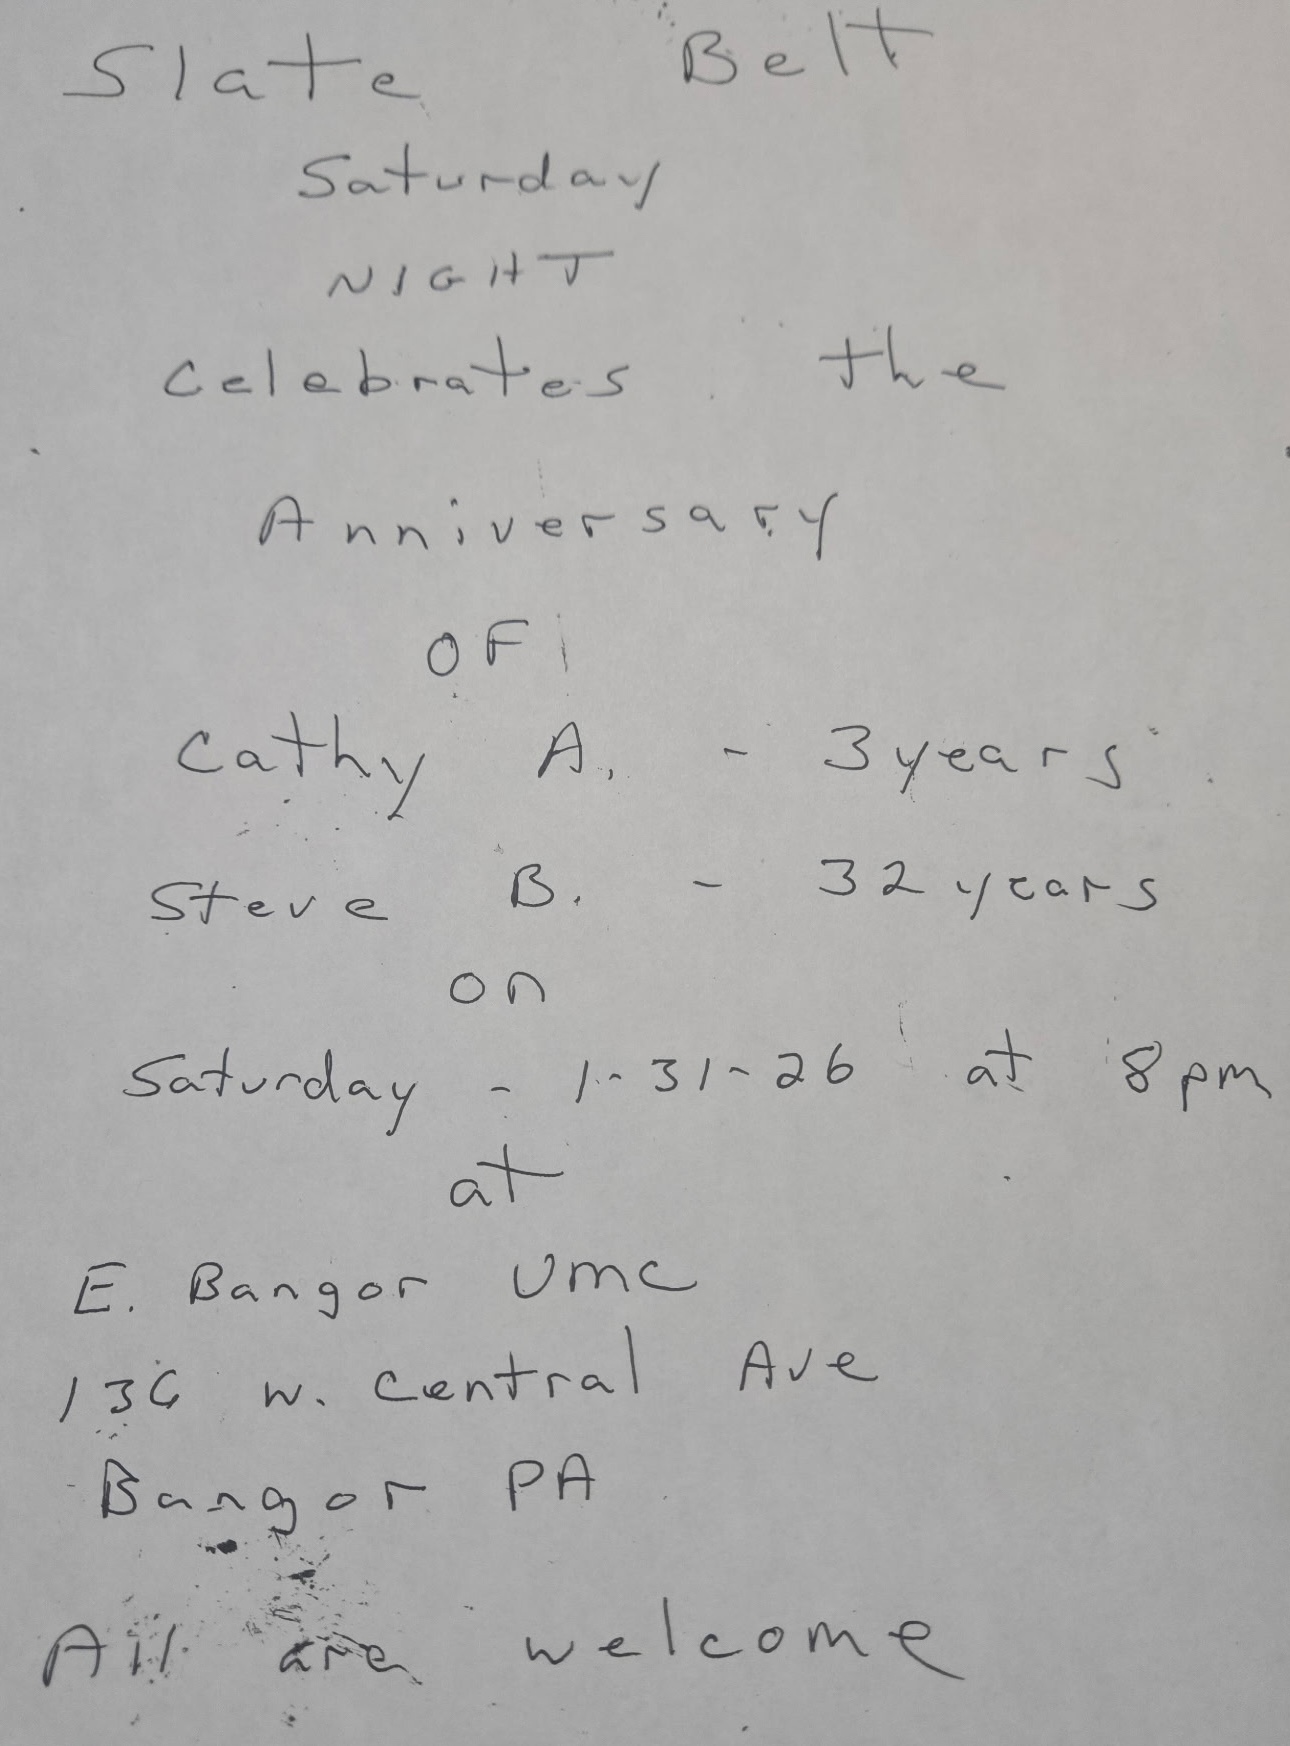 Slate Belt
Saturday
NIGHT
Celebrates the
Anniversary
OF
Cathy A. - 3 years
Steve B. - 32 years
on
Saturday - 1-31-26 at 8pm
at
E. Bangor UMC
136 W. Central Ave
Bangor PA
All are welcome